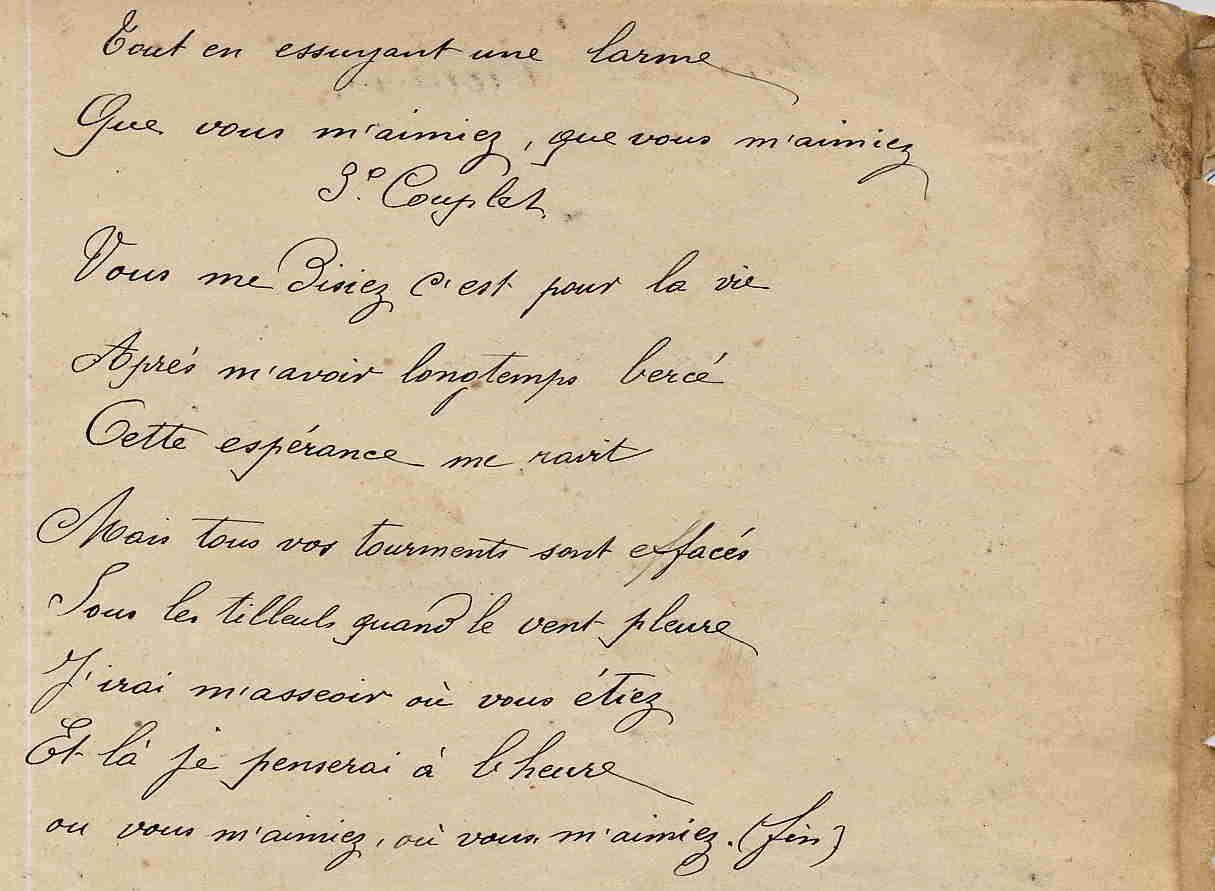 Tout en essuyant une larme
Que vous m'aimiez, que vous m'aimiez
3e. Couplet
Vous me Disiez c'est pour la vie
Aprés m'avoir longtemps bercé
Cette espérance me ravit
Mais tous vos tourments sont effacés
Sous les tilleuls quand le vent pleure
J'irai m'asseoir où vous étiez
Et là je penserai à l'heure
ou vous m'aimiez, où vous m'aimiez. (fin)